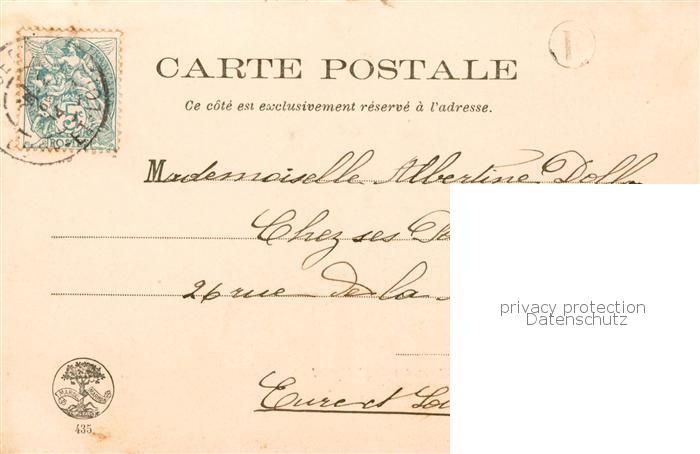 CARTE POSTALE
Ce côté est exclusivement réservé à l'adresse.
Mademoiselle Albertine Doll
Chez ses
26 rue de la
privacy protection
Datenschutz
Eure et
435